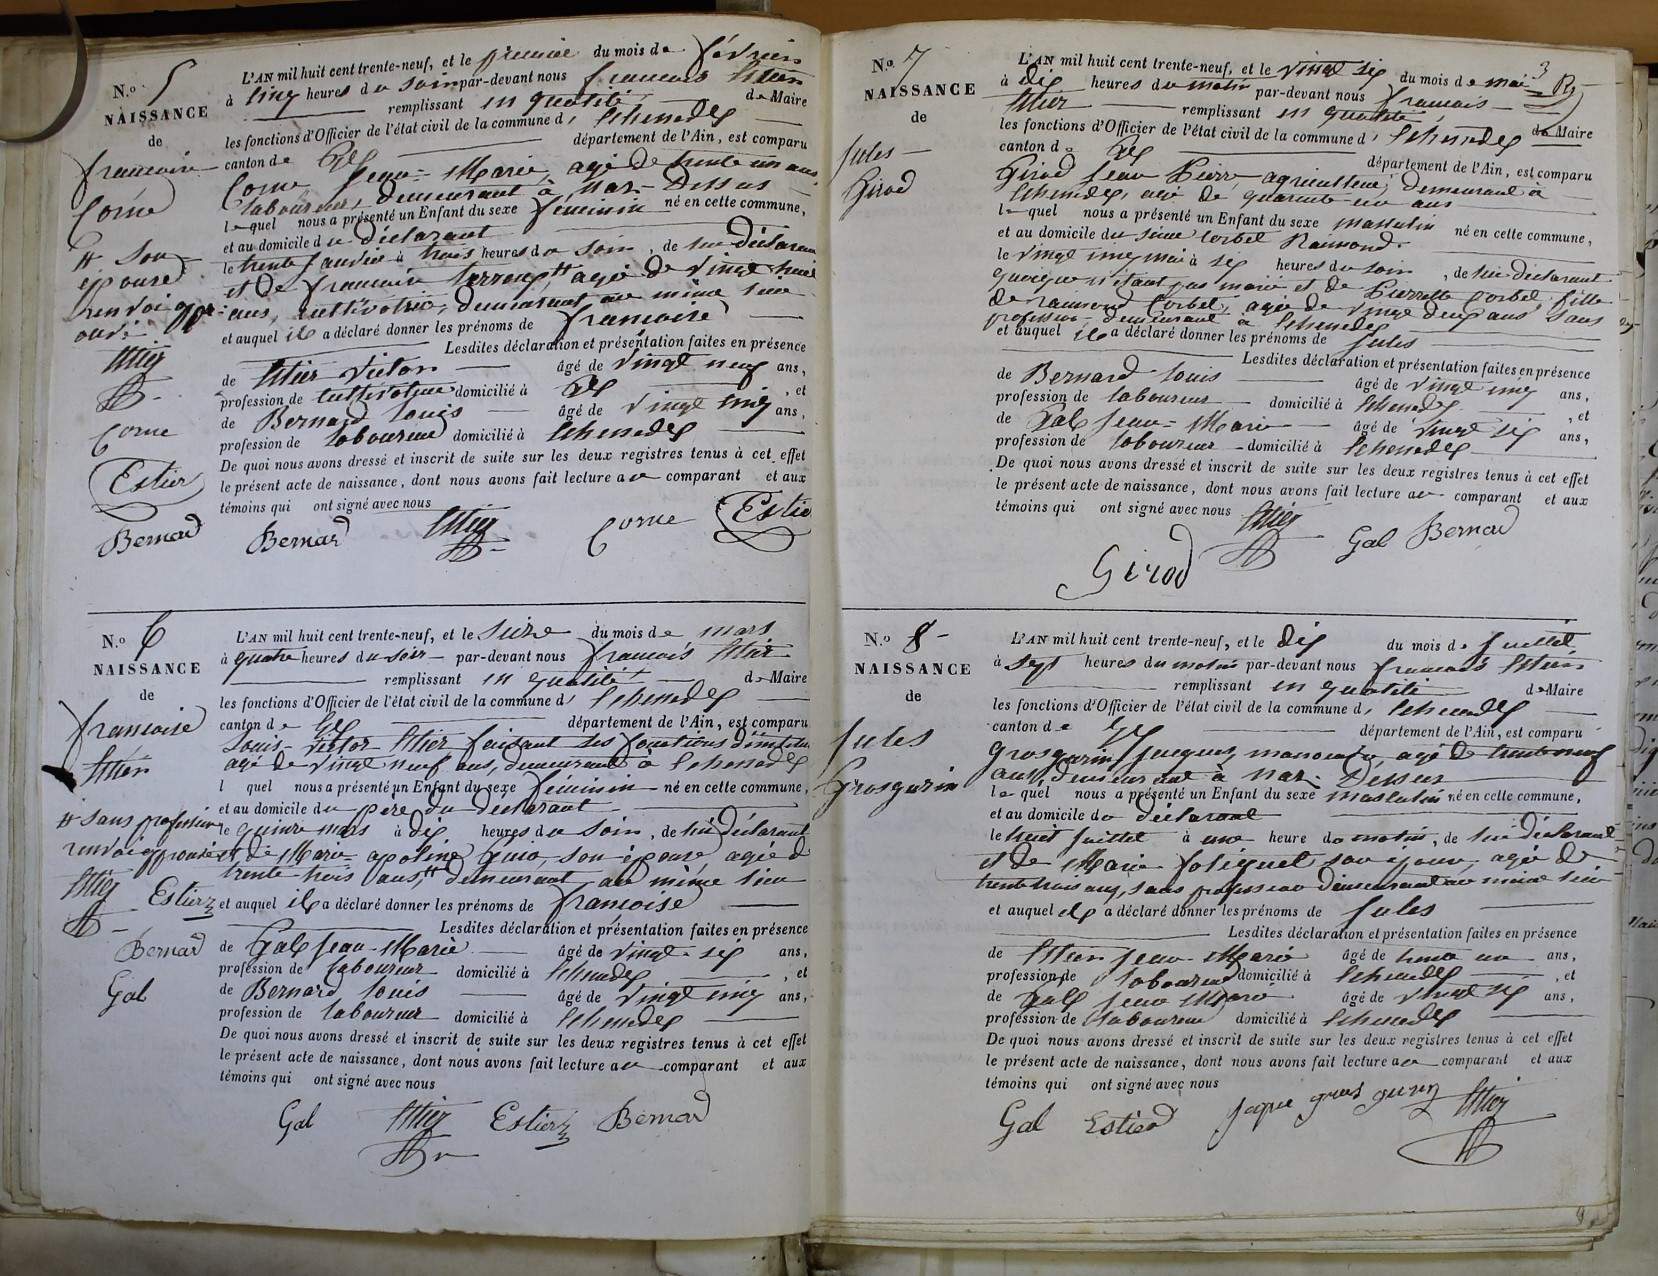 N.o 5
NAISSANCE
de
francoise
Corne
# son
epouse
renvoi app
ouvé
Corne
Estier
Bernard
L'AN mil huit cent trente-neuf, et le premier du mois de février
à cinq heures du soir par-devant nous francois Estier
remplissant en qualité de Maire
les fonctions d'Officier de l'état civil de la commune d'Echenedex
canton de Gex département de l'Ain, est comparu
Corne Jean-Marie, agé de trente un ans,
laboureur, demeurant à Nax-Dessus
lequel nous a présenté un Enfant du sexe féminin né en cette commune,
et au domicile du déclarant
le trente janvier à trois heures du soir, de lui déclarant
et de francoise # agée de vingt huit
ans, cultivatrice, demeurant au même lieu
et auquel il a déclaré donner les prénoms de francoise
Lesdites déclaration et présentation faites en présence
de Estier Victor âgé de vingt neuf ans,
profession de cultivateur domicilié à Gex, et
de Bernard Louis âgé de vingt cinq ans,
profession de laboureur domicilié à Echenedex
De quoi nous avons dressé et inscrit de suite sur les deux registres tenus à cet effet
le présent acte de naissance, dont nous avons fait lecture au comparant et aux
témoins qui ont signé avec nous
Bernard Estier Corne Estier
N.o 6
NAISSANCE
de
francoise
Estier
# sans profession
renvoi approuvé
Estier Estier
Bernard
Gal
L'AN mil huit cent trente-neuf, et le seize du mois de mars
à quatre heures du soir par-devant nous francois Estier
remplissant en qualité de Maire
les fonctions d'Officier de l'état civil de la commune d'Echenedex
canton de Gex département de l'Ain, est comparu
Louis-Victor Estier faisant les fonctions d'institu
agé de vingt neuf ans, demeurant à Echenedex
l quel nous a présenté un Enfant du sexe féminin né en cette commune,
et au domicile du père du déclarant
le quinze mars à dix heures du soir, de lui déclarant
et de Marie apoline son épouse, agée de
trente trois ans # demeurant au même lieu
et auquel il a déclaré donner les prénoms de francoise
Lesdites déclaration et présentation faites en présence
de Gal Jean-Marie âgé de vingt six ans,
profession de laboureur domicilié à Echenedex, et
de Bernard Louis âgé de vingt cinq ans,
profession de laboureur domicilié à Echenedex
De quoi nous avons dressé et inscrit de suite sur les deux registres tenus à cet effet
le présent acte de naissance, dont nous avons fait lecture au comparant et aux
témoins qui ont signé avec nous
Gal Estier Estier Bernard
3
N.o 7
NAISSANCE
de
Jules
Girod
L'AN mil huit cent trente-neuf, et le vingt six du mois de mai
à dix heures du matin par-devant nous francois
Estier remplissant en qualité de Maire
les fonctions d'Officier de l'état civil de la commune d'Echenedex
canton de Gex département de l'Ain, est comparu
Girod Jean Pierre agriculteur, demeurant à
Echenedex, agé de quarante un ans
lequel nous a présenté un Enfant du sexe masculin né en cette commune,
et au domicile du sieur Corbet Raimond
le vingt cinq mai à six heures du soir, de lui déclarant
quoique n'étant pas marié et de Pierrette Corbet fille
de Raimond Corbet, agée de vingt deux ans sans
profession demeurant à Echenedex
et auquel il a déclaré donner les prénoms de Jules
Lesdites déclaration et présentation faites en présence
de Bernard Louis âgé de vingt cinq ans,
profession de laboureur domicilié à Echenedex, et
de Gal Jean-Marie âgé de vingt six ans,
profession de laboureur domicilié à Echenedex
De quoi nous avons dressé et inscrit de suite sur les deux registres tenus à cet effet
le présent acte de naissance, dont nous avons fait lecture au comparant et aux
témoins qui ont signé avec nous Estier
Gal Bernard
Girod
N.o 8
NAISSANCE
de
Jules
Grosgurin
L'AN mil huit cent trente-neuf, et le dix du mois de Juillet
à sept heures du matin par-devant nous francois Estier
remplissant en qualité de Maire
les fonctions d'Officier de l'état civil de la commune d'Echenedex
canton de Gex département de l'Ain, est comparu
Grosgurin Jacques, manoeuvre, agé de trente neuf
ans, demeurant à Nax-Dessus
lequel nous a présenté un Enfant du sexe masculin né en cette commune,
et au domicile du déclarant
le huit juillet à une heure du matin, de lui déclarant
et de Marie Joliquet son épouse, agée de
trente trois ans, sans profession demeurant au même lieu
et auquel il a déclaré donner les prénoms de Jules
Lesdites déclaration et présentation faites en présence
de Estier Jean-Marie âgé de trente un ans,
profession de laboureur domicilié à Echenedex, et
de Gal Jean Marie âgé de vingt six ans,
profession de laboureur domicilié à Echenedex
De quoi nous avons dressé et inscrit de suite sur les deux registres tenus à cet effet
le présent acte de naissance, dont nous avons fait lecture au comparant et aux
témoins qui ont signé avec nous
Gal Estier Jaque gros gurin Estier